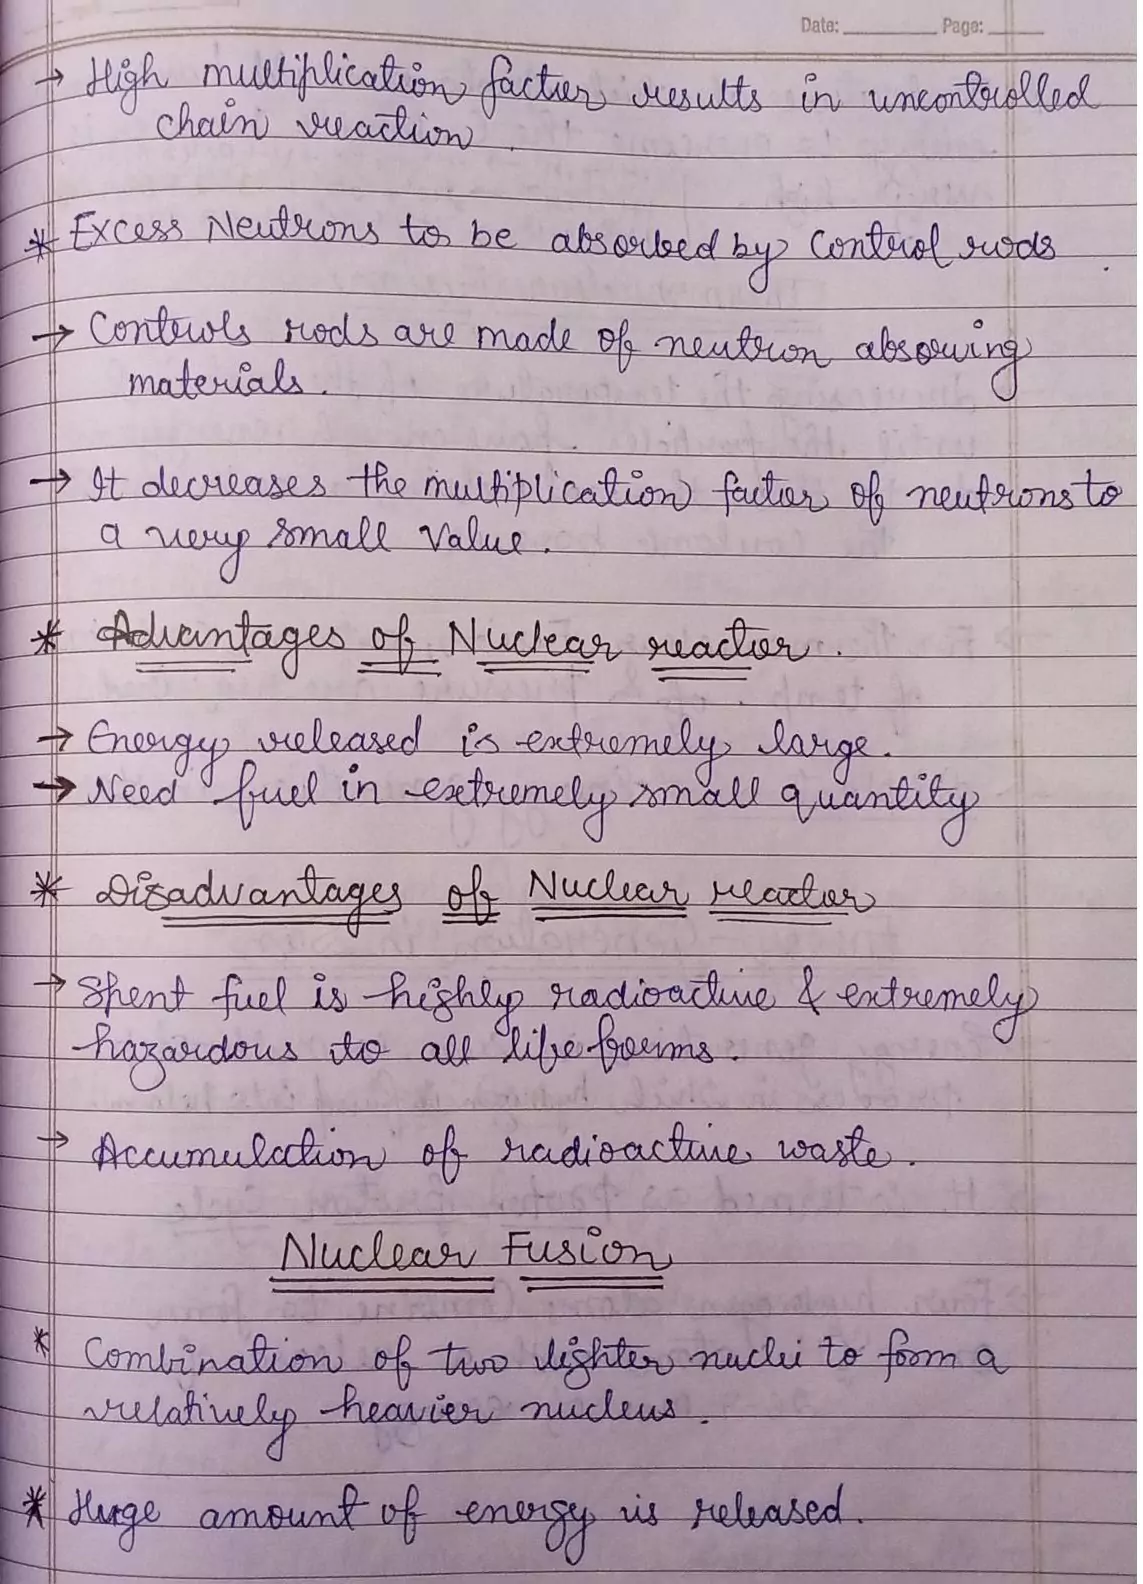 Date: Page:
→ High multiplication factor results in uncontrolled
chain reaction.
* Excess Neutrons to be absorbed by control rods.
→ Controls rods are made of neutron absorving
materials.
→ It decreases the multiplication factor of neutrons to
a very small value.
* Advantages of Nuclear reactor.
→ Energy released is extremely large.
→ Need fuel in extremely small quantity
* Disadvantages of Nuclear reactor
→ Spent fuel is highly radioactive & extremely
hazardous to all life forms.
→ Accumulation of radioactive waste.
Nuclear Fusion
* Combination of two lighter nuclei to form a
relatively heavier nucleus.
* Huge amount of energy is released.